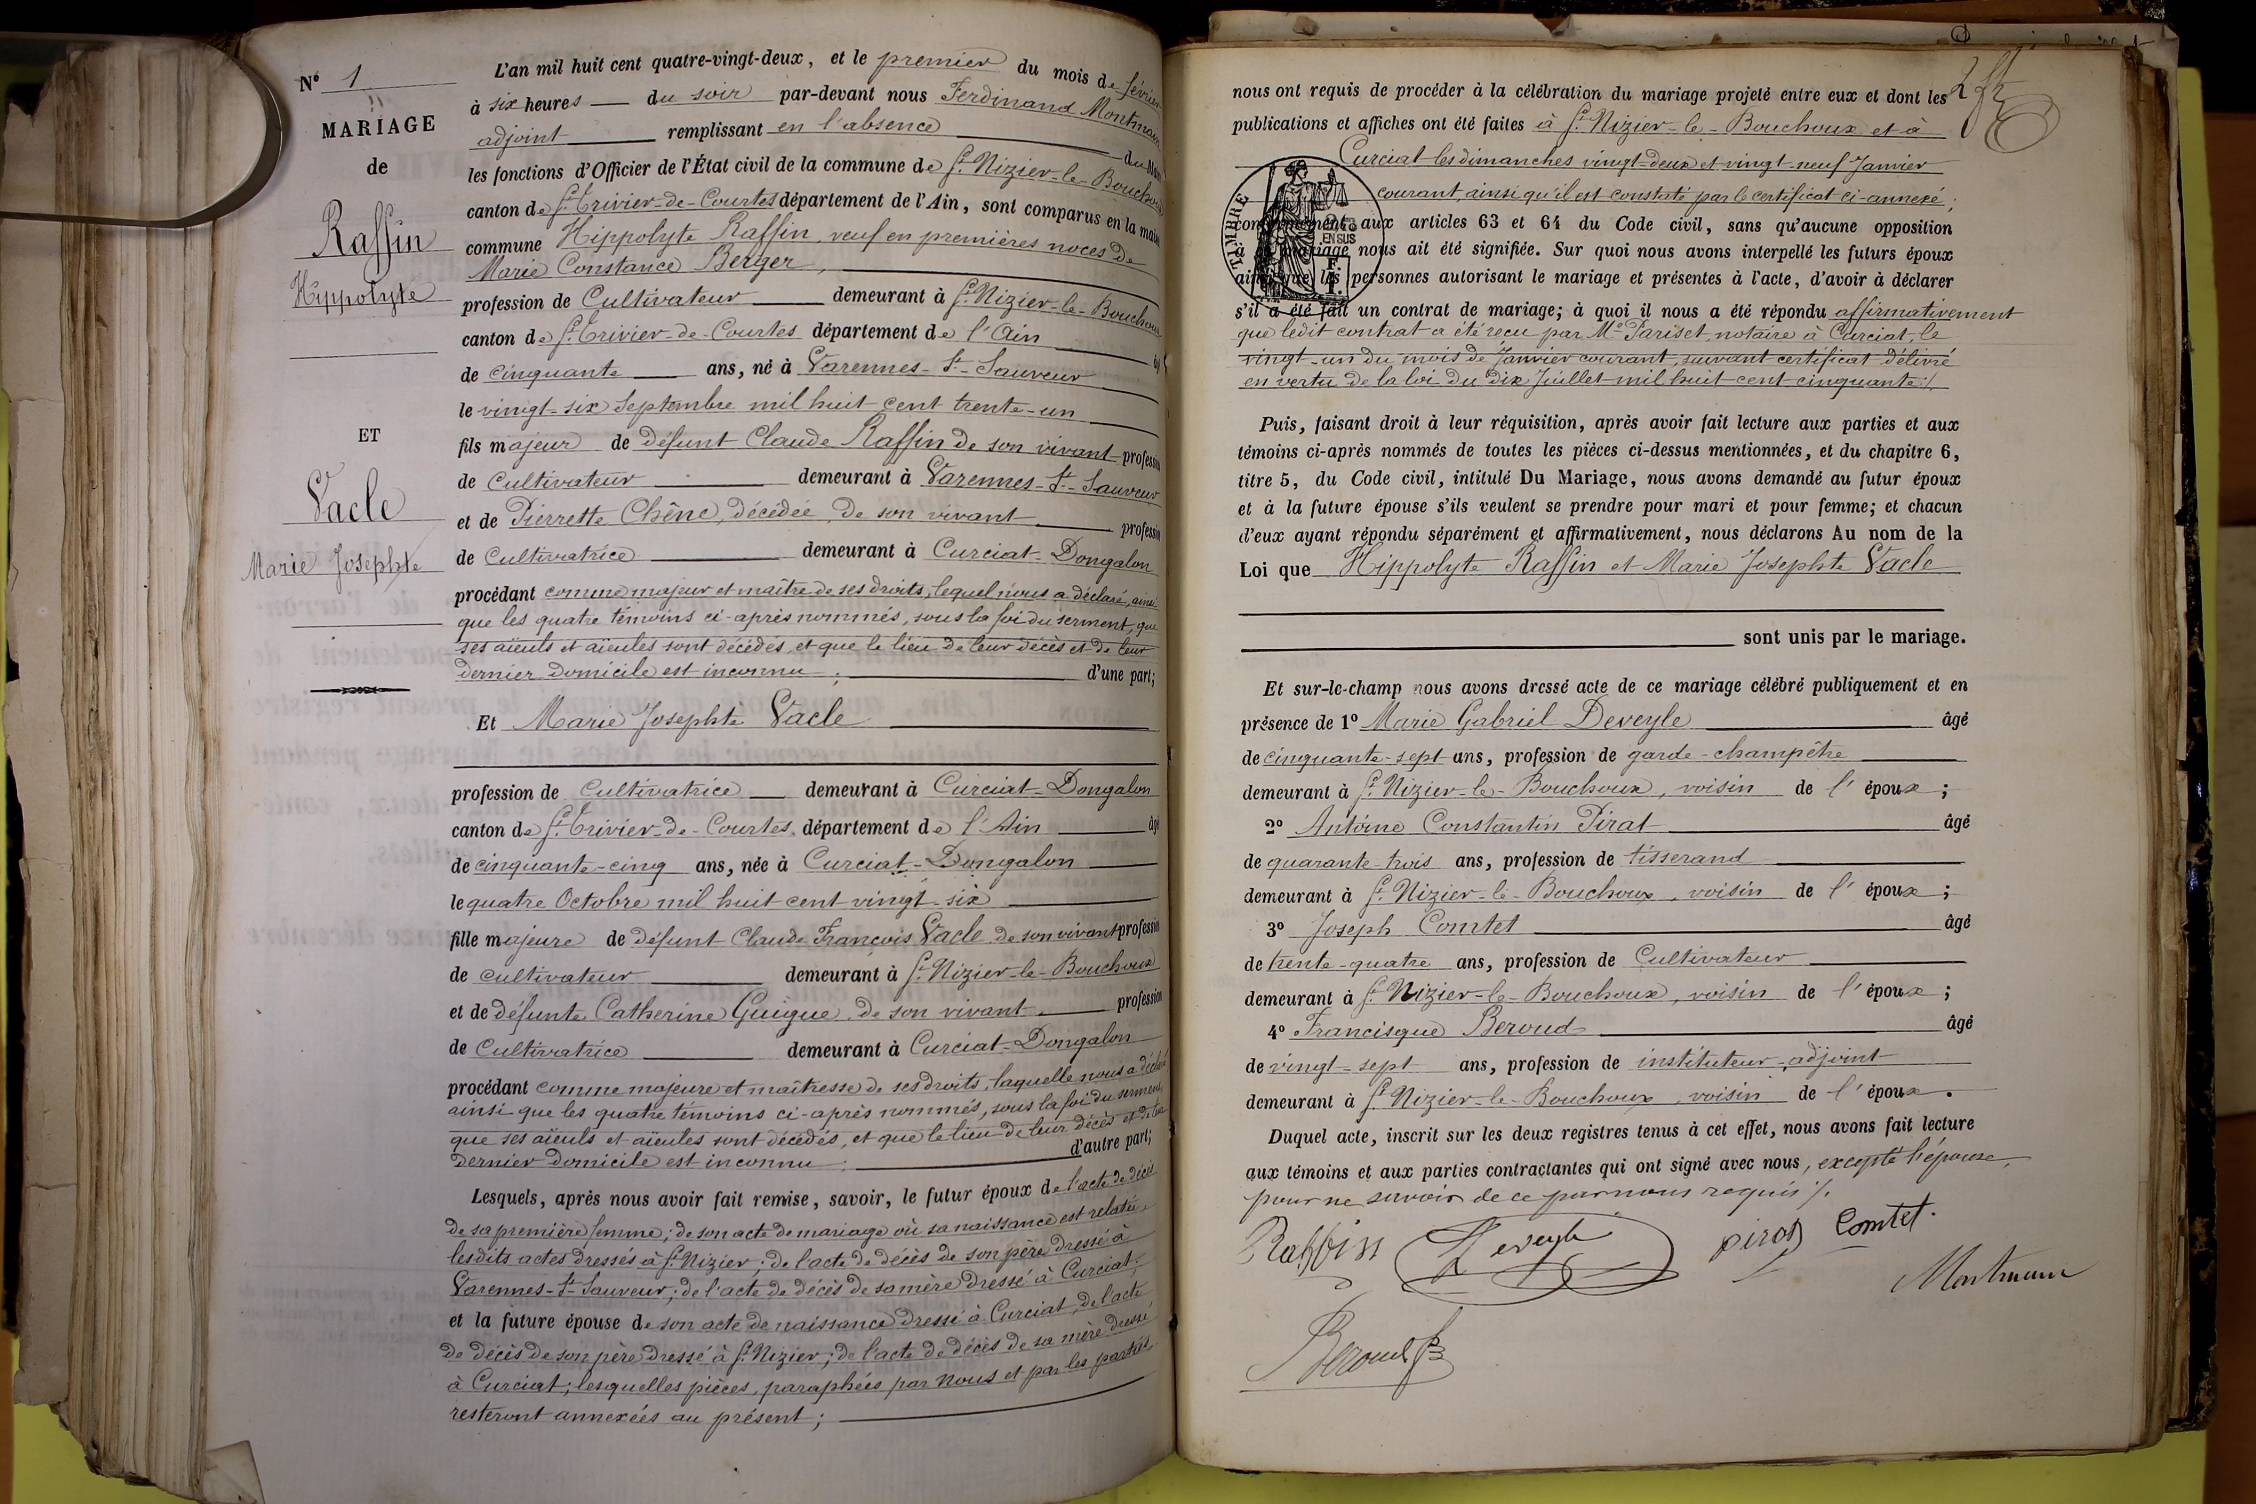 Nº 1
MARIAGE
de
Raffin
Hippolyte
ET
Vacle
Marie Josephte
L'an mil huit cent quatre-vingt-deux, et le premier du mois de février
à six heures du soir par-devant nous Ferdinand Montmain
adjoint remplissant en l'absence du Maire
les fonctions d'Officier de l'État civil de la commune de St Nizier-le-Bouchoux
canton de St Trivier-de-Courtes département de l'Ain, sont comparus en la maison
commune Hippolyte Raffin, veuf en premières noces de
Marie Constance Berger,
profession de Cultivateur demeurant à St Nizier-le-Bouchoux
canton de St Trivier-de-Courtes département de l'Ain
de cinquante ans, né à Varennes-St-Sauveur
le vingt-six Septembre mil huit cent trente-un
fils majeur de défunt Claude Raffin de son vivant profession
de Cultivateur demeurant à Varennes-St-Sauveur
et de Pierrette Chêne, décédée, de son vivant profession
de Cultivatrice demeurant à Curciat-Dongalon
procédant comme majeur et maître de ses droits, lequel nous a déclaré, ainsi
que les quatre témoins ci-après nommés, sous la foi du serment, que
ses aïeuls et aïeules sont décédés, et que le lieu de leur décès et de leur
dernier domicile est inconnu ; d'une part;
Et Marie Josephte Vacle
profession de Cultivatrice demeurant à Curciat-Dongalon
canton de St Trivier-de-Courtes, département de l'Ain âgé
de cinquante-cinq ans, née à Curciat-Dongalon
le quatre Octobre mil huit cent vingt-six
fille majeure de défunt Claude François Vacle de son vivant profession
de cultivateur demeurant à St Nizier-le-Bouchoux
et de défunte Catherine Guigue de son vivant profession
de Cultivatrice demeurant à Curciat-Dongalon
procédant comme majeure et maîtresse de ses droits, laquelle nous a déclaré
ainsi que les quatre témoins ci-après nommés, sous la foi du serment
que ses aïeuls et aïeules sont décédés, et que le lieu de leur décès et de leur
dernier domicile est inconnu ; d'autre part;
Lesquels, après nous avoir fait remise, savoir, le futur époux de l'acte de décès
de sa première femme; de son acte de mariage où sa naissance est relatée
lesdits actes dressés à St Nizier; de l'acte de décès de son père dressé à
Varennes-St-Sauveur; de l'acte de décès de sa mère dressé à Curciat;
et la future épouse de son acte de naissance dressé à Curciat, de l'acte
de décès de son père dressé à St Nizier; de l'acte de décès de sa mère dressé
à Curciat; lesquelles pièces, paraphées par nous et par les parties
resteront annexées au présent;
nous ont requis de procéder à la célébration du mariage projeté entre eux et dont les
publications et affiches ont été faites à St Nizier-le-Bouchoux et à
Curciat les dimanches vingt-deux et vingt-neuf Janvier
courant, ainsi qu'il est constaté par le certificat ci-annexé;
conformément aux articles 63 et 64 du Code civil, sans qu'aucune opposition
mariage nous ait été signifiée. Sur quoi nous avons interpellé les futurs époux
ainsi que les personnes autorisant le mariage et présentes à l'acte, d'avoir à déclarer
s'il a été fait un contrat de mariage; à quoi il nous a été répondu affirmativement
que ledit contrat a été reçu par Me Pariset, notaire à Curciat, le
vingt-un du mois de Janvier courant, suivant certificat délivré
en vertu de la loi du dix Juillet mil huit cent cinquante;
TIMBRE
EN SUS
Puis, faisant droit à leur réquisition, après avoir fait lecture aux parties et aux
témoins ci-après nommés de toutes les pièces ci-dessus mentionnées, et du chapitre 6,
titre 5, du Code civil, intitulé Du Mariage, nous avons demandé au futur époux
et à la future épouse s'ils veulent se prendre pour mari et pour femme; et chacun
d'eux ayant répondu séparément et affirmativement, nous déclarons Au nom de la
Loi que Hippolyte Raffin et Marie Josephte Vacle
sont unis par le mariage.
Et sur-le-champ nous avons dressé acte de ce mariage célébré publiquement et en
présence de 1º Marie Gabriel Deveyle âgé
de cinquante-sept ans, profession de garde-champêtre
demeurant à St Nizier-le-Bouchoux, voisin de l'époux ;
2º Antoine Constantin Pirat âgé
de quarante-trois ans, profession de tisserand
demeurant à St Nizier-le-Bouchoux, voisin de l'époux ;
3º Joseph Comtet âgé
de trente-quatre ans, profession de Cultivateur
demeurant à St Nizier-le-Bouchoux, voisin de l'époux ;
4º Francisque Beroud âgé
de vingt-sept ans, profession de instituteur-adjoint
demeurant à St Nizier-le-Bouchoux, voisin de l'époux.
Duquel acte, inscrit sur les deux registres tenus à cet effet, nous avons fait lecture
aux témoins et aux parties contractantes qui ont signé avec nous, excepté l'épouse,
pour ne savoir de ce par nous requis ./.
Raffin Deveyle pirat Comtet.
Montmain
Beroud